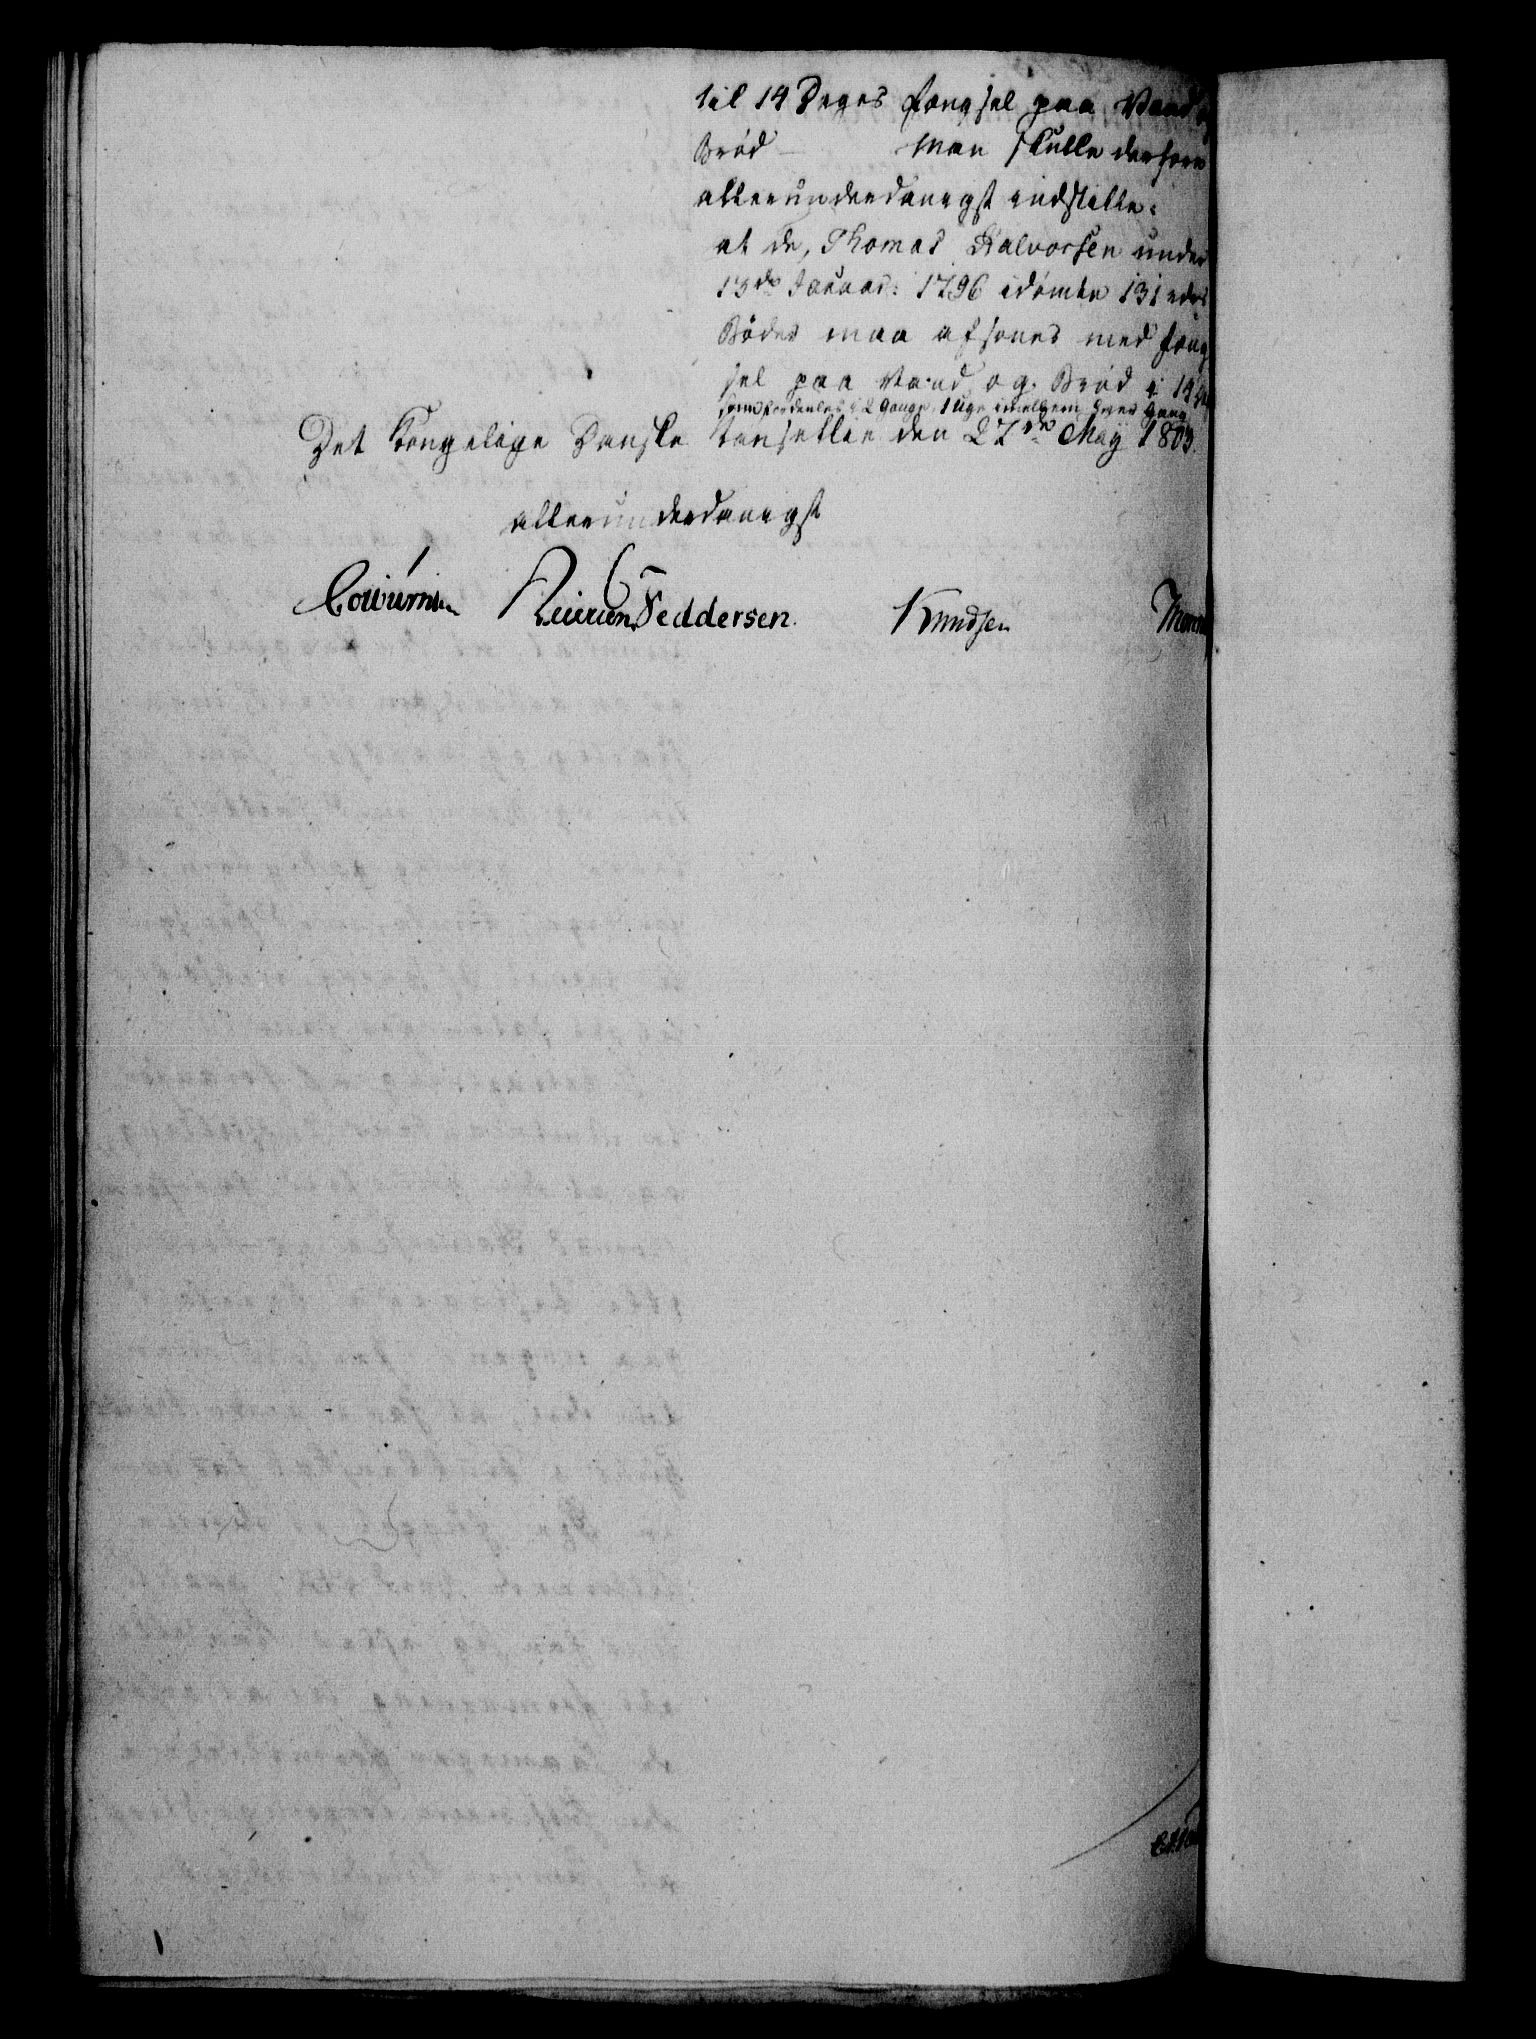 til 14 Dages Fængsel paa Vand og
Brød — Man skulle derfore
allerunderdanigst indstille:
at de, Thomas Halvorsen under
13de Januar: 1796 idømte 131 rdrs
Bøder maa afsones med Fæng
sel paa Vand og Brød i 14
som fordeles i 2 Gange, 1 Uge imellem hver Gang
Det Kongelige Danske Cancellie den 27de May 1803.
allerunderdanigst
Feddersen.
Knudsen